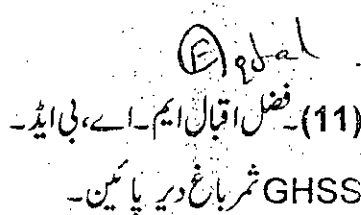 (11)۔ فضل اقبال ایم۔اے، بی ایڈ۔
GHSS ثمر باغ دیر پائین۔